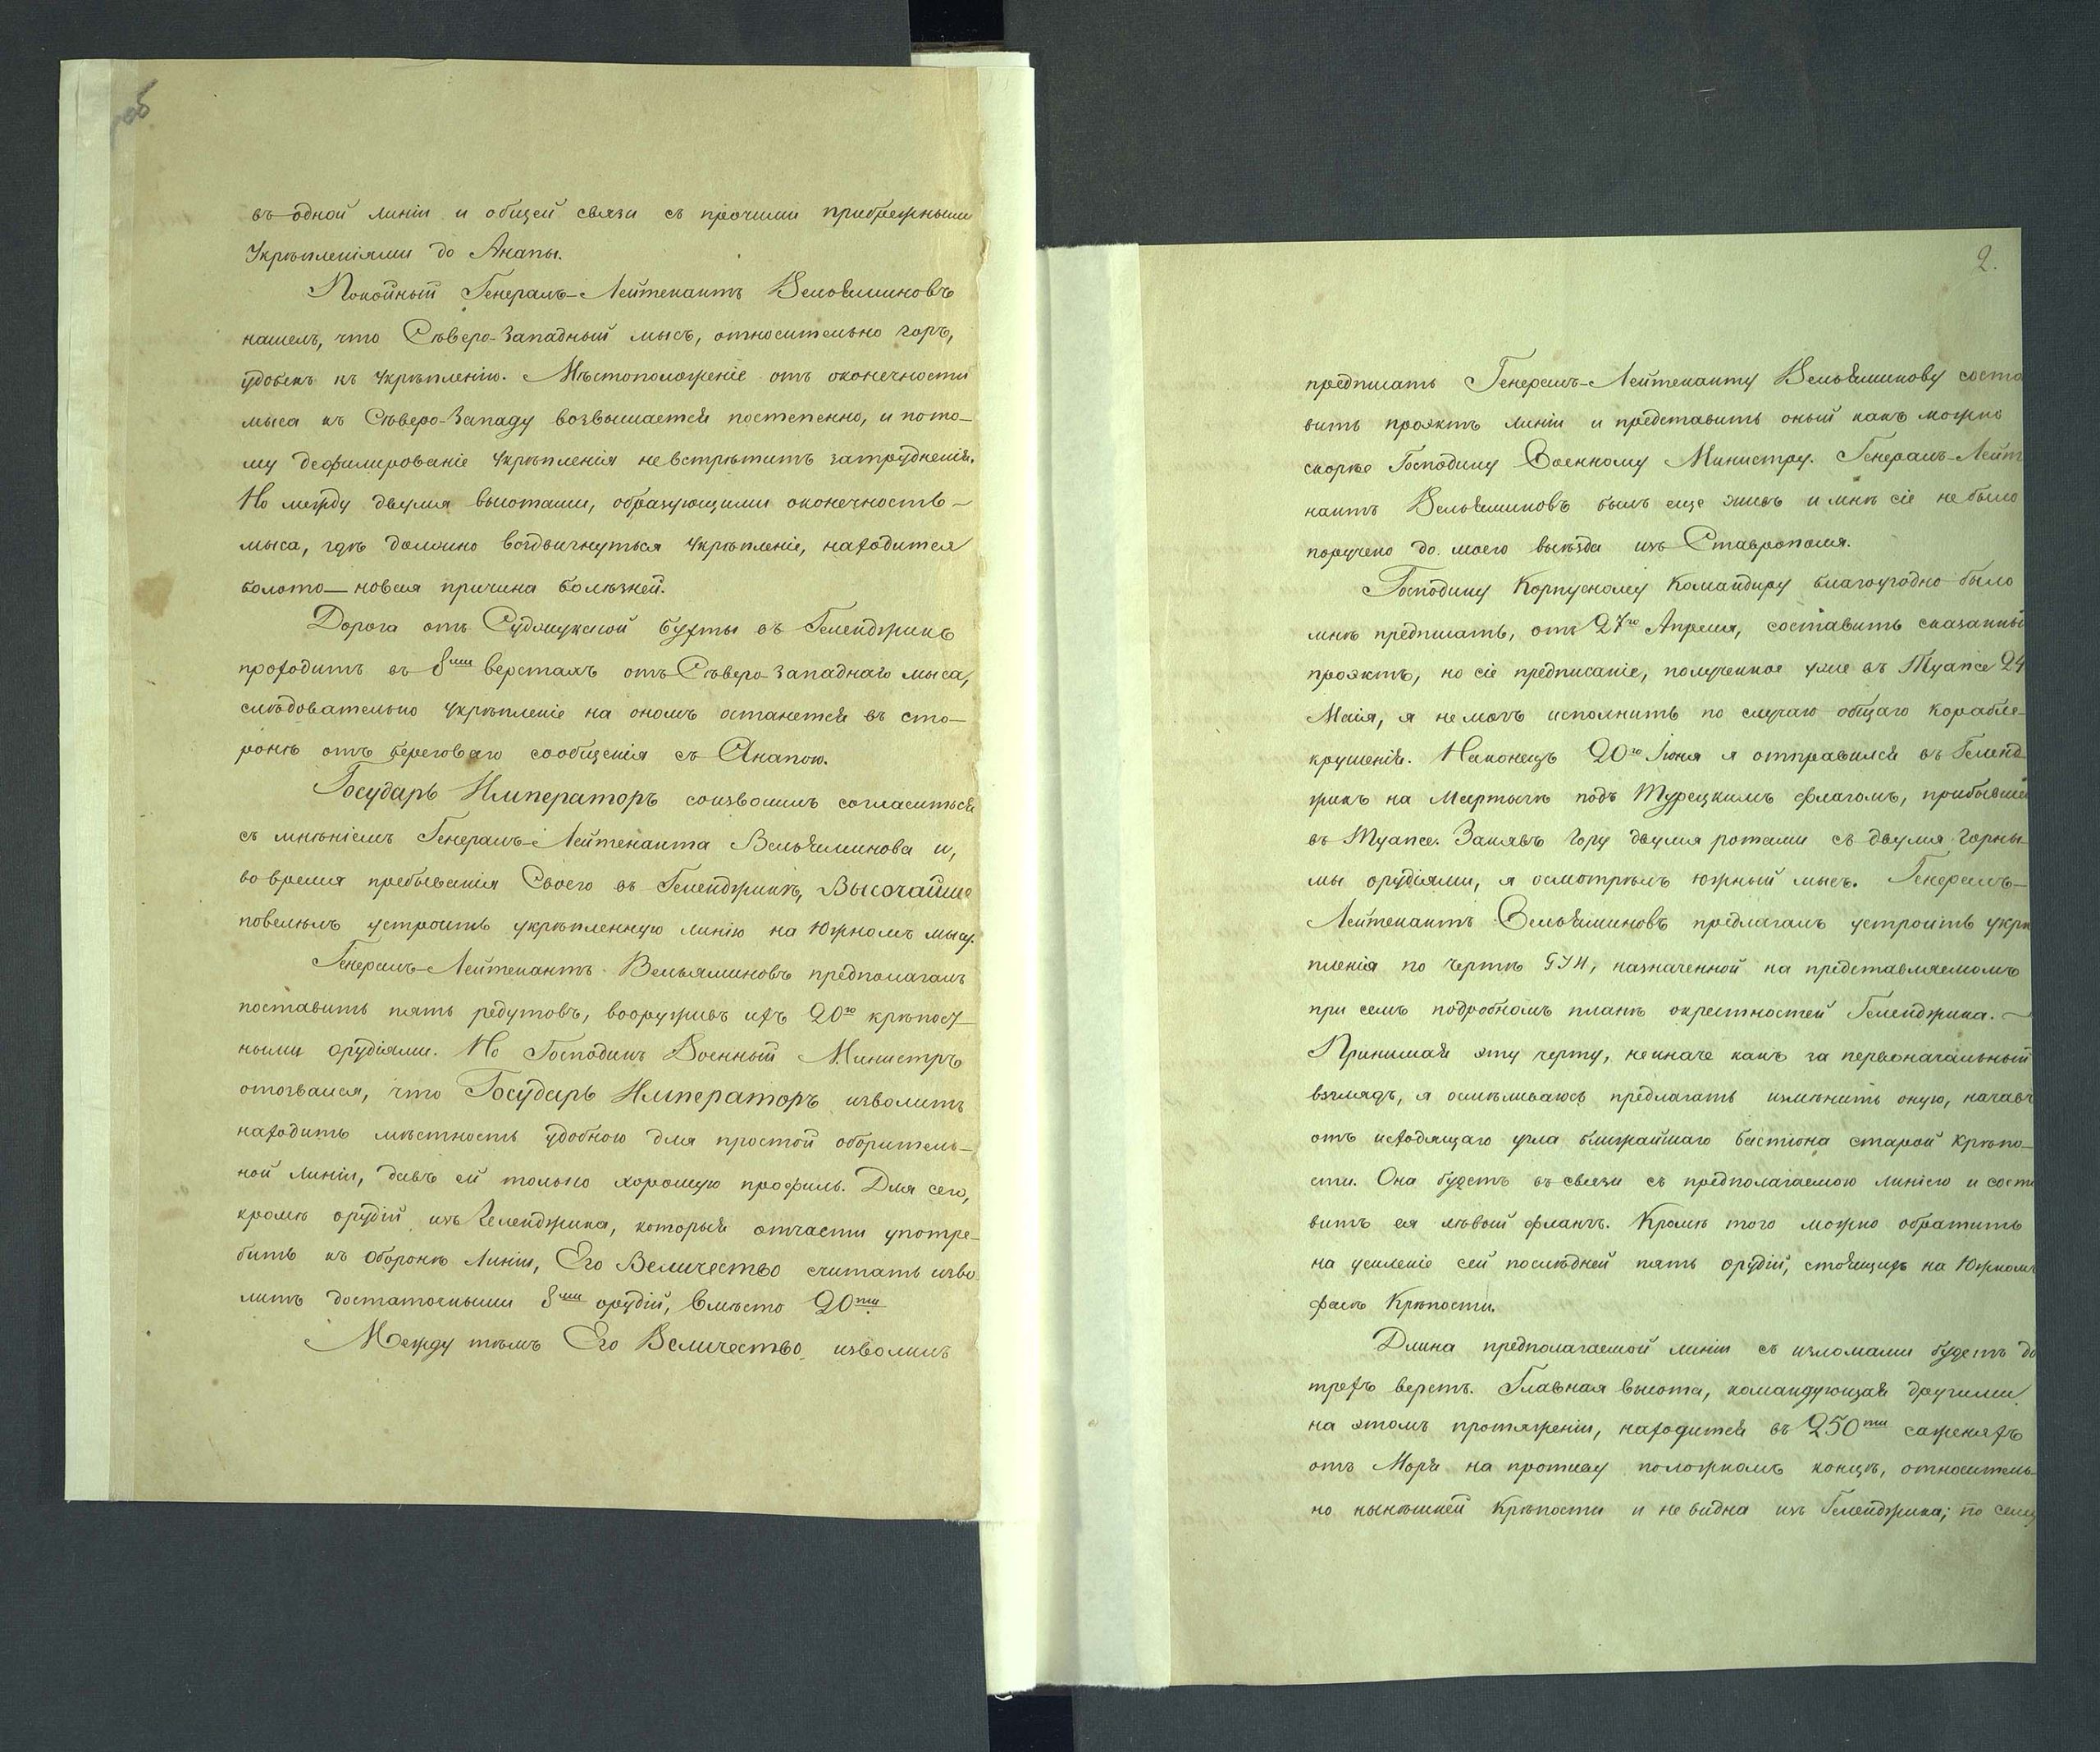 въ одной линіи и общей связи съ прочими прибрежными
Укрѣпленіями до Анапы.
Покойный Генералъ-Лейтенантъ Вельяминовъ
нашелъ, что Сѣверо-Западный мысъ, относительно горъ,
удобенъ къ укрѣпленію. Мѣстоположеніе отъ оконечности
мыса къ Сѣверо-Западу возвышается постепенно, и пото-
му дефилированіе укрѣпленія невстрѣтитъ затрудненія.
Но между двумя высотами, образующими оконечность-
мыса, гдѣ должно воздвигнуться укрѣпленіе, находится
болото-новая причина болѣзней.
Дорога отъ Суджукской бухты въ Геленджикъ
проходитъ въ 8ми верстахъ отъ Сѣверо-Западнаго мыса,
слѣдовательно укрѣпленіе на ономъ останется въ сто-
ронѣ отъ береговаго сообщенія съ Анапою.
Государь Императоръ соизволилъ согласиться
съ мнѣніемъ Генералъ-Лейтенанта Вельяминова и,
во время пребыванія Своего въ Геленджикѣ, Высочайше
повелѣлъ устроить укрѣпленную линію на Южномъ мысу.
Генералъ-Лейтенантъ Вельяминовъ предполагалъ
поставить пять редутовъ, вооруживъ ихъ 20ю крѣпост-
ными орудіями. Но Господинъ Военный Министръ
отозвался, что Государь Императоръ изволитъ
находить мѣстность удобною для простой оборитель-
ной линіи, давъ ей только хорошую профиль. Для сего,
кромѣ орудій изъ Геленджика, которыя отчасти употре-
бить къ оборонѣ Линіи, Его Величество считать изво-
литъ достаточными 8ми орудій, вмѣсто 20ти
Между тѣмъ Его Величество изволилъ
2.
предписать Генералъ-Лейтенанту Вельяминову соста
вить проэктъ линіи и представить оный какъ можно
скорѣе Господину Военному Министру. Генералъ-Лейт
нантъ Вельяминовъ былъ еще живъ и мнѣ сіе не было
поручено до моего выѣзда изъ Ставрополя.
Господину Корпусному Командиру благоугодно было
мнѣ предписать, отъ 27го Апрѣля, составить сказанный
проэктъ, но сіе предписаніе, полученное уже въ Туапсе 24
Маія, я не могъ исполнить по случаю общаго корабле-
крушенія. Наконецъ 20го Іюня я отправился въ Геленд-
жикъ на Мартычѣ подъ Турецкимъ флагомъ, прибывшей
въ Туапсе. Занявъ гору двумя ротами съ двумя горны-
мы орудіями, я осмотрѣлъ южный мысъ. Генералъ-
Лейтенантъ Вельяминовъ предлагалъ устроить укрѣ
пленія по чертѣ GYH, назначенной на представляемомъ
при семъ подробномъ планѣ окрестностей Геленджика.-
Принимая эту черту, неиначе какъ за первоначальный
взглядъ, я осмѣливаюсь предлагать измѣнить оную, начавъ
отъ исходящаго угла ближайшаго бастіона старой крѣпо-
сти. Она будетъ въ связи съ предполагаемою линіею и соста
витъ ея лѣвый флангъ. Кромѣ того можно обратить
на усиленіе сей послѣдней пять орудій, стоящихъ на Южномъ
фасѣ Крѣпости.
Длина предполагаемой линіи съ изломами будетъ до
трехъ верстъ. Главная высота, командующая другими
на этомъ протяженіи, находится въ 250ти саженяхъ
отъ Моря на противу положномъ концѣ, относитель-
но нынѣшней Крѣпости и не видна изъ Геленджика; по сему